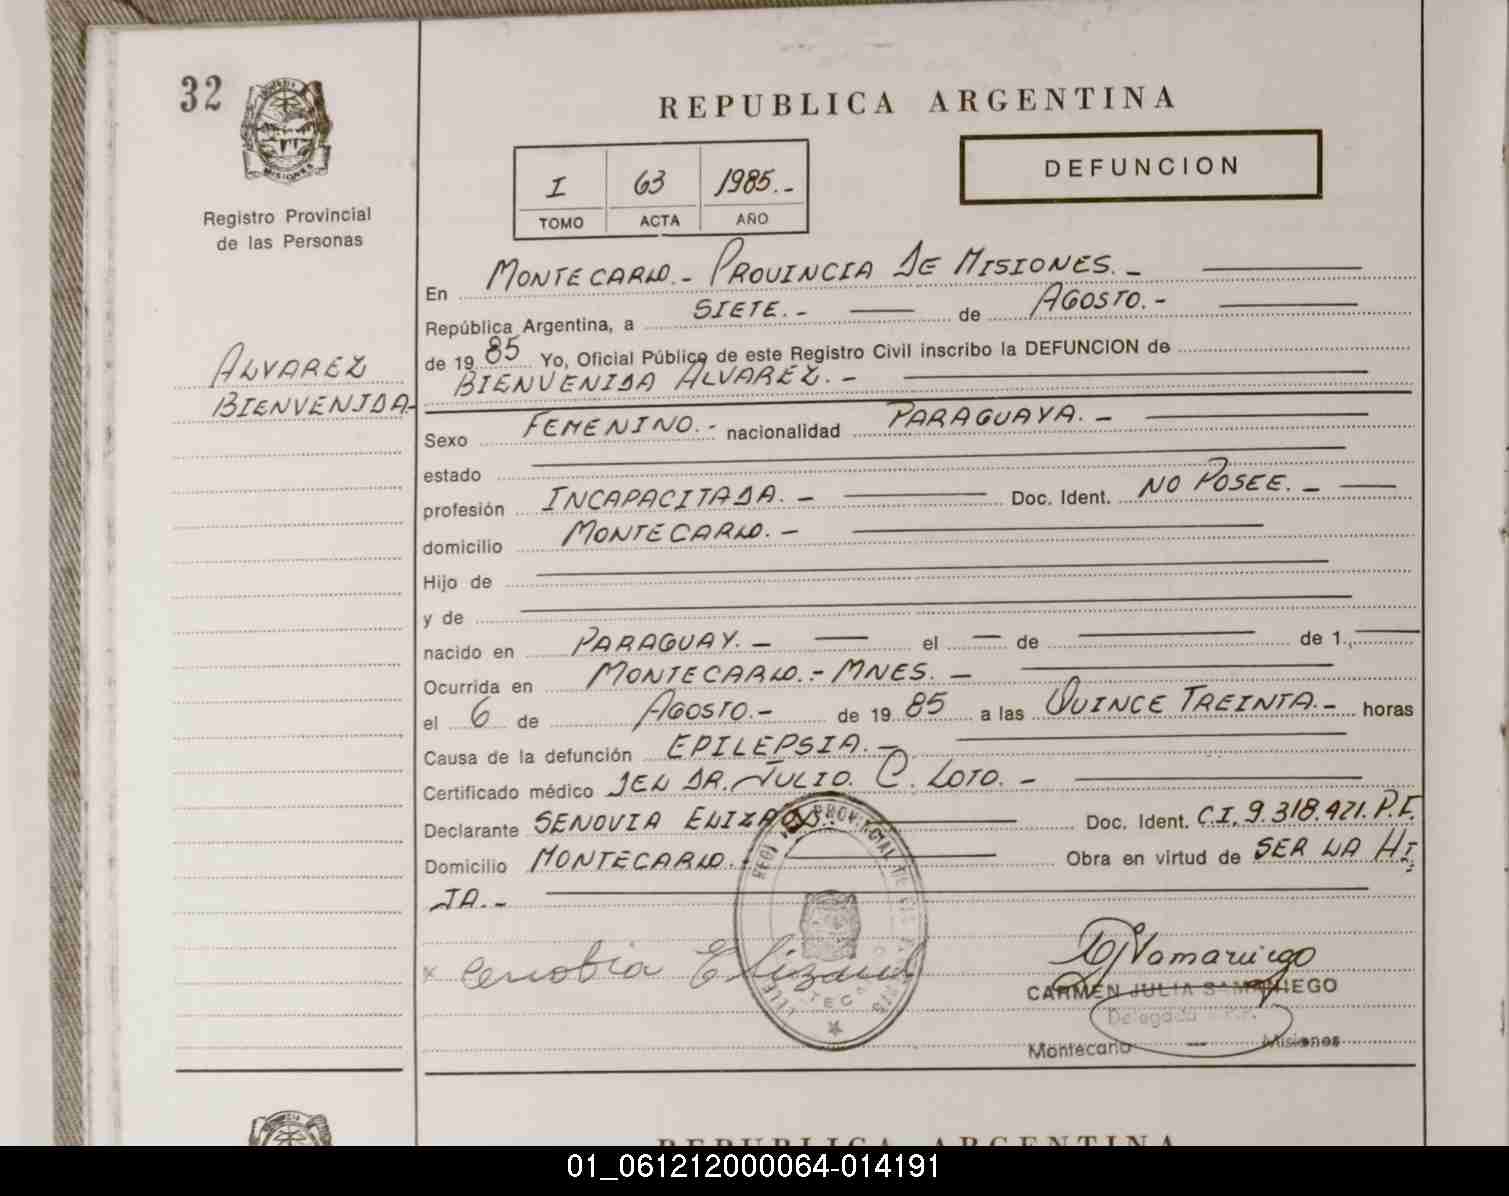 32
MISIONES
Registro Provincial
de las Personas
ALVAREZ
BIENVENIDA-
REPUBLICA ARGENTINA
I 63 1985.-
TOMO ACTA AÑO
DEFUNCION
En MONTECARLO.- PROVINCIA DE MISIONES.-
República Argentina, a SIETE.- de AGOSTO.-
de 1985 Yo, Oficial Público de este Registro Civil inscribo la DEFUNCION de
BIENVENIDA ALVAREZ.-
Sexo FEMENINO.- nacionalidad PARAGUAYA.-
estado
profesión INCAPACITADA.- Doc. Ident. NO POSEE.-
domicilio MONTECARLO.-
Hijo de
y de
nacido en PARAGUAY.- el — de de 1.,
Ocurrida en MONTECARLO.- MNES.-
el 6 de AGOSTO.- de 1985 a las QUINCE TREINTA.- horas
Causa de la defunción EPILEPSIA.-
Certificado médico DEL DR. JULIO. C. LOTO.-
Declarante SENOVIA Doc. Ident. C.I. 9.318.921. P.F.
Domicilio MONTECARLO.- Obra en virtud de SER LA HI
JA.-
x Cenobia Elizaul
CARMEN JULIA SAMANIEGO
Delegada
Montecarlo — Misiones
REPUBLICA ARGENTINA
01_061212000064-014191